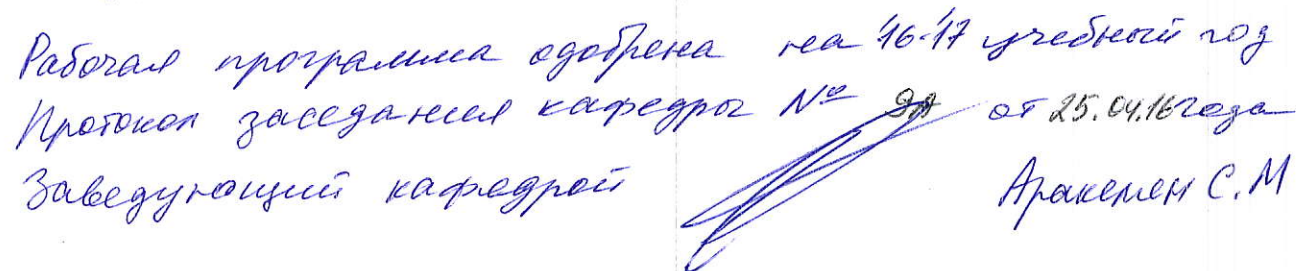 Рабочая программа одобрена на '16-'17 учебный год
Протокол заседания кафедры № от 25.04.16 года
Заведующий кафедрой Аракелян С.М